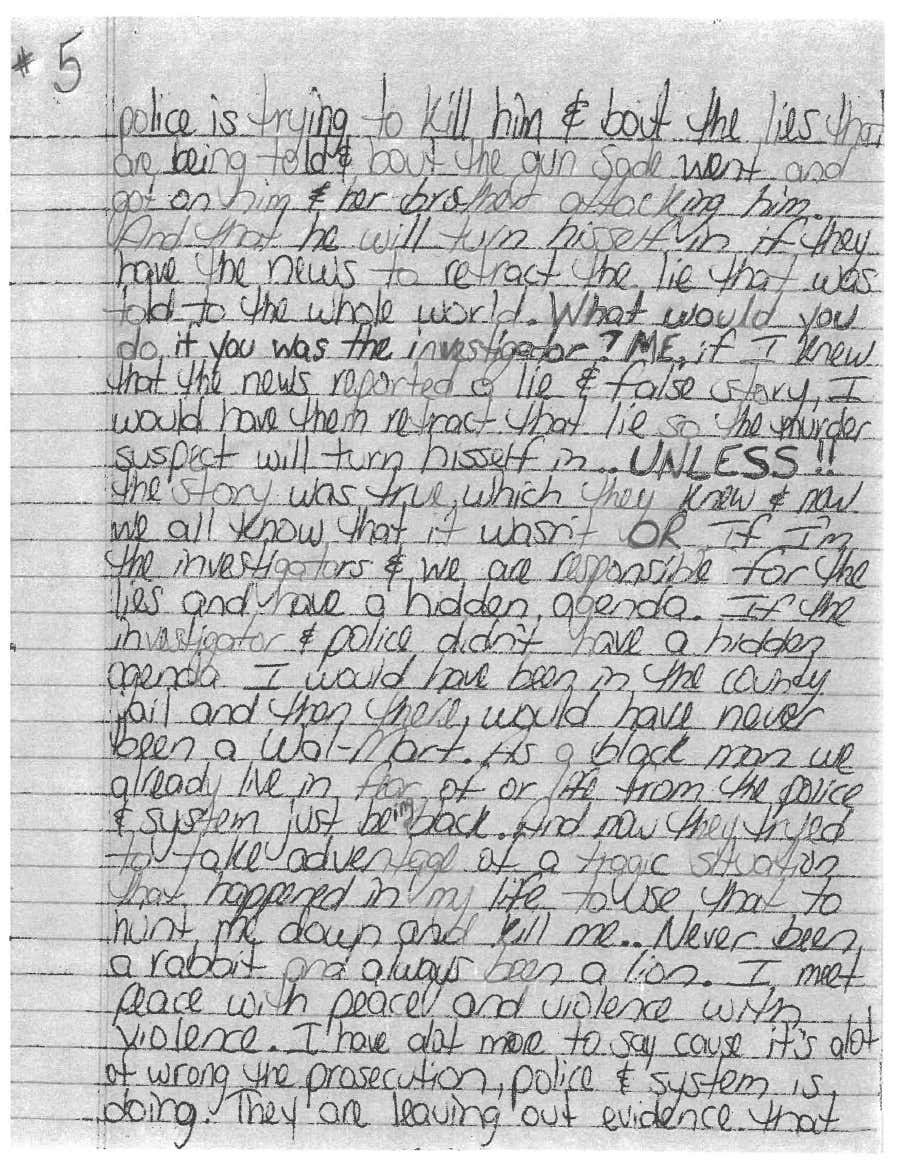 # 5
police is trying to kill him & bout the lies that
are being told & bout the gun Sade went and
got on him & her brother attacking him.
And that he will turn hisself in if they
have the news to retract the lie that was
told to the whole world. What would you
do, if you was the investigator? ME, if I knew
that the news reported a lie & false story, I
would have them retract that lie so the murder
suspect will turn hisself in.. UNLESS!!
the story was true, which they knew & now
we all know that it wasn't OR if I'm
the investigators & we are responsible for the
lies and have a hidden agenda. If the
investigator & police didn't have a hidden
agenda I would have been in the county
jail and then there, would have never
been a Wal-Mart. As a black man we
already live in fear of or life from the police
& system just being back. And now they tryed
to take adventage of a tragic situation
that happened in my life to use that to
hunt me down and kill me.. Never been
a rabbit and always been a lion. I meet
peace with peace and violence with
violence. I have alot more to say cause it's alot
of wrong the prosecution, police & system is
doing. They are leaving out evidence that